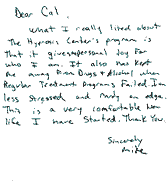 Dear Cal,
What I really liked about
The Hypnosis Center's program is
That it gives personal joy for
who I am. It also has kept
me away from Drugs & Alcohol when
Regular Treatment Programs Failed. I'm
less Stressed and rarely on edge.
This is a very comfortable new
life I have Started. Thank You.
Sincerely
Mike